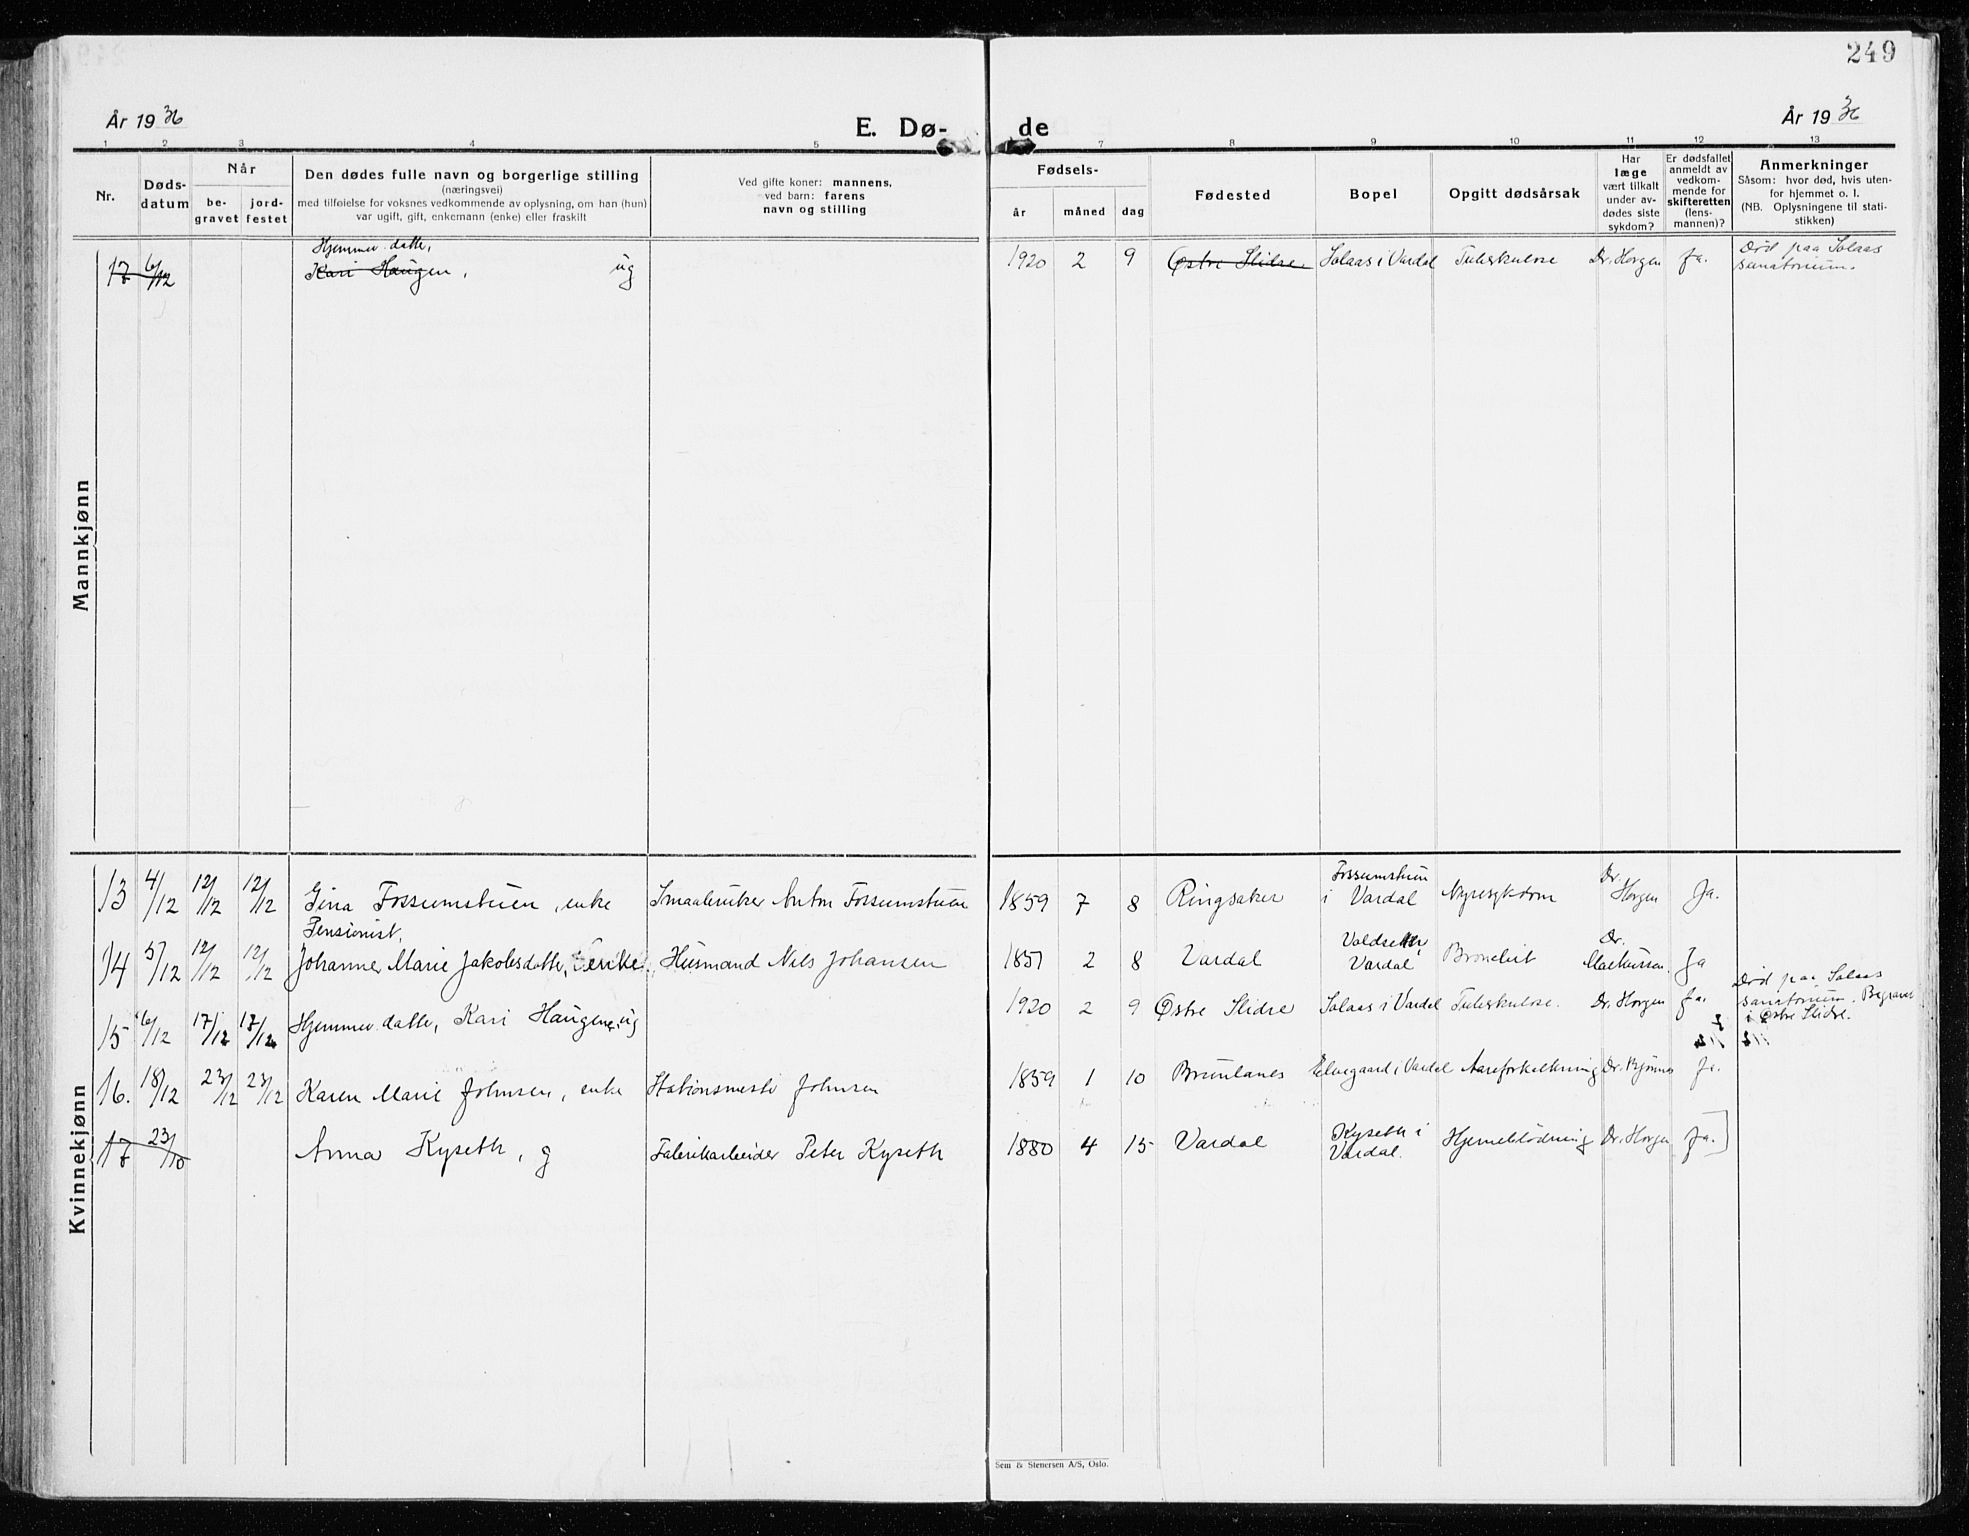 249
År 1936
E. Dø-
de
År 1936
1 2 3 4 5 7 8 9 10 11 12 13
Nr.
Døds-
datum
Når
be-
gravet
jord-
festet
Den dødes fulle navn og borgerlige stilling
(næringsvei)
med tilføielse for voksnes vedkommende av oplysning, om han (hun)
var ugift, gift, enkemann (enke) eller fraskilt
Ved gifte koner: mannens,
ved barn: farens
navn og stilling
Fødsels-
år
måned
dag
Fødested
Bopel
Opgitt dødsårsak
Har
læge
vært tilkalt
under av-
dødes siste
sykdom?
Er dødsfallet
anmeldt av
vedkom-
mende for
skifteretten
(lens-
mannen)?
Anmerkninger
Såsom: hvor død, hvis uten-
for hjemmet o. l.
(NB. Oplysningene til stati-
stikken)
Mannkjønn
Hjemmev. datter,
17 6/12 Kari Haugen, ug 1920 2 9 Østre Slidre Solaas i Vardal Tuberkulose Dr. Horgen Ja. Død paa Solaas
sanatorium.
Kvinnekjønn
13 4/12 12/12 12/12 Gina Fossumstuen, enke Smaabruker Anton Fossumstuen 1859 7 8 Ringsaker Fossumstuen i Vardal Nyresykdom Dr. Horgen Ja.
Pensionist.
14 5/12 12/12 12/12 Johanne Marie Jakobsdatter, enke. Husmand Nils Johansen 1851 2 8 Vardal Voldseter Vardal Bronchit Dr. Markussen Ja
15 6/12 17/12 17/12 Hjemmev. datter, Kari Haugen, ug 1920 2 9 Østre Slidre Solaas i Vardal Tuberkulose. Dr. Horgen Ja. Død paa Solaas
sanatorium. Begravet
i Østre Slidre.
16. 18/12 23/12 23/12 Karen Marie Johnsen, enke Stationsmester Johnsen 1859 1 10 Brunlanes Elvegaard i Vardal Aareforkalkning Dr. Bjørnes Ja.
17 23/10 Anna Kyseth, g Fabrikarbeider Peter Kyseth 1880 4 15 Vardal Kyseth i Vardal. Hjerneblødning Dr. Horgen Ja.]
Sem & Stenersen A/S, Oslo.